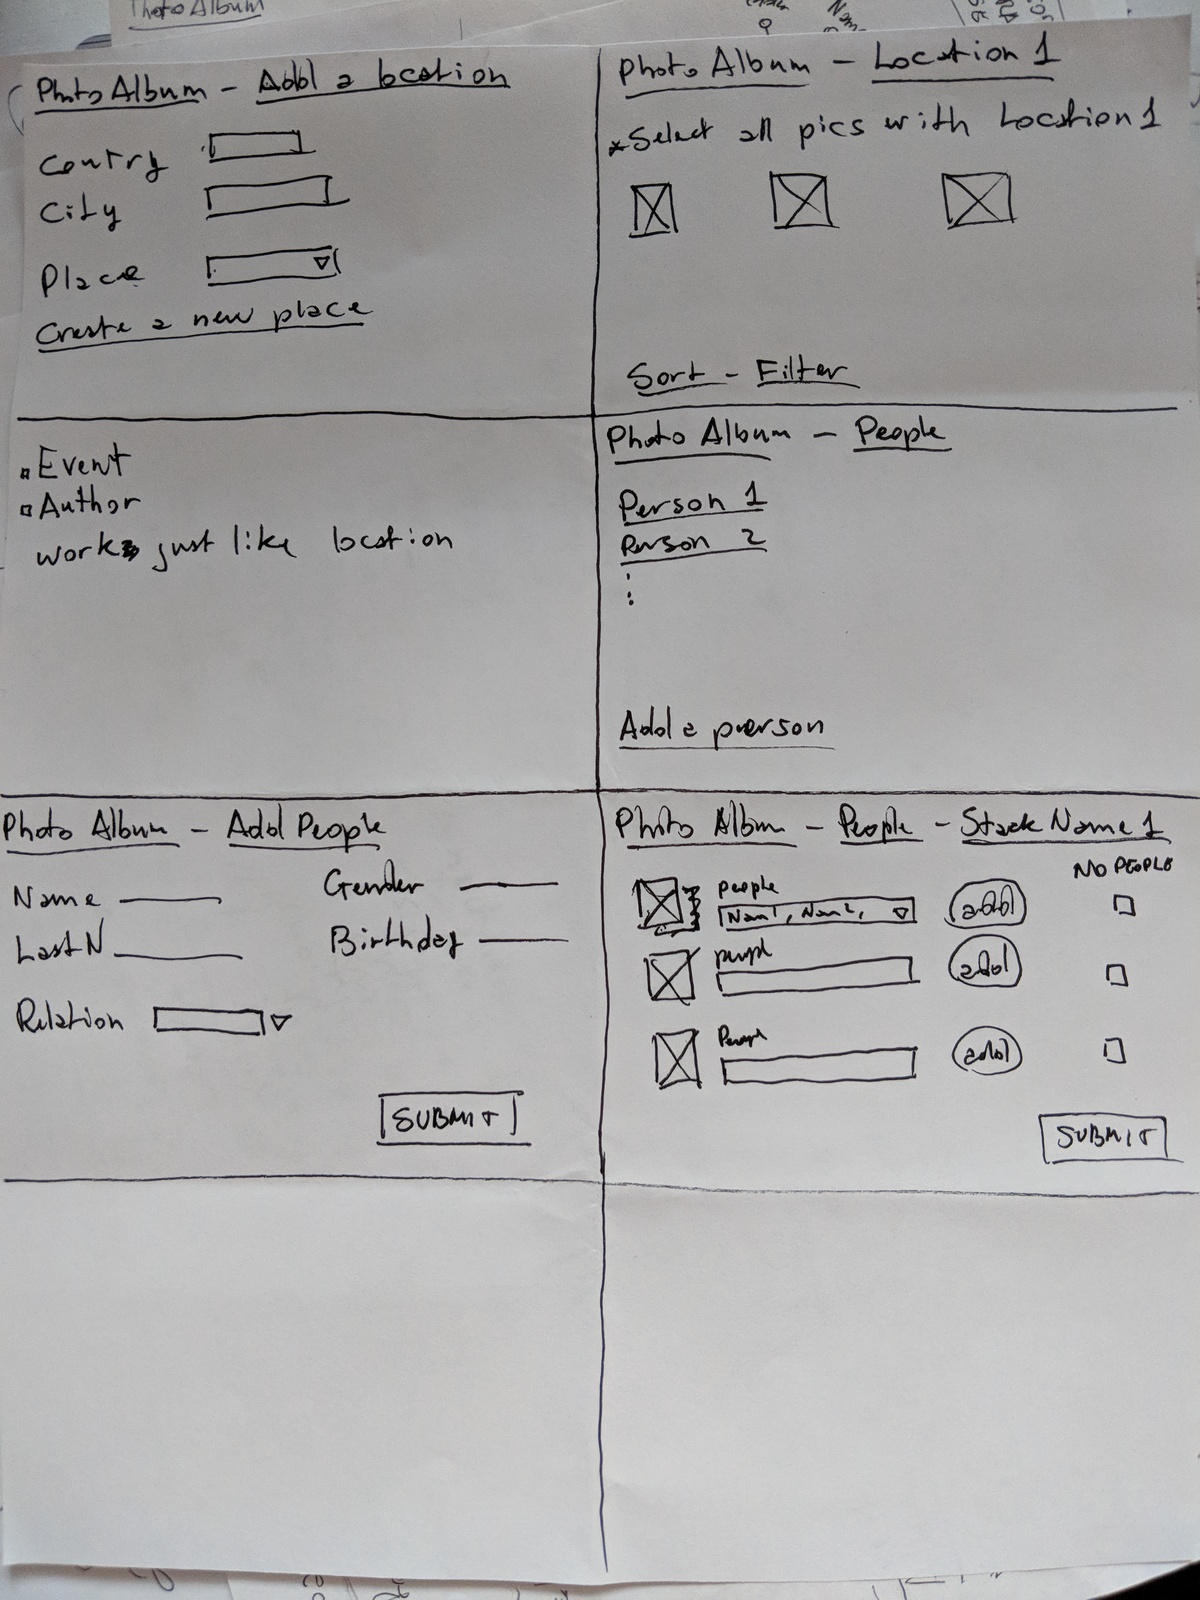 Photo Album
Photo Album - Add a location
Contry
City
Place
Create a new place
Photo Album - Location 1
*Select all pics with Location 1
Sort - Filter
Event
Author
works just like location
Photo Album - People
Person 1
Person 2
Add a person
Photo Album - Add People
Name
Gender
Last N
Birthday
Relation
SUBMIT
Photo Album - People - Stack Name 1
NO PEOPLE
people
Nam1, Nam2,
add
add
add
SUBMIT